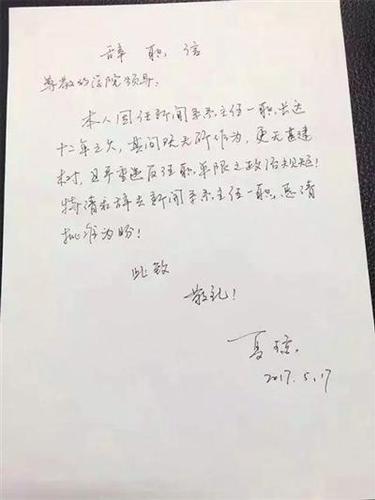 辞职信
尊敬的学院领导:
本人因任新闻系系主任一职长达
十二年之久,其间既无所作为,更无甚建
树,且早违反任职年限之政治规矩!
特请求辞去新闻系系主任一职,恳请
批准为盼!
此致
敬礼!
夏琼
2017.5.17